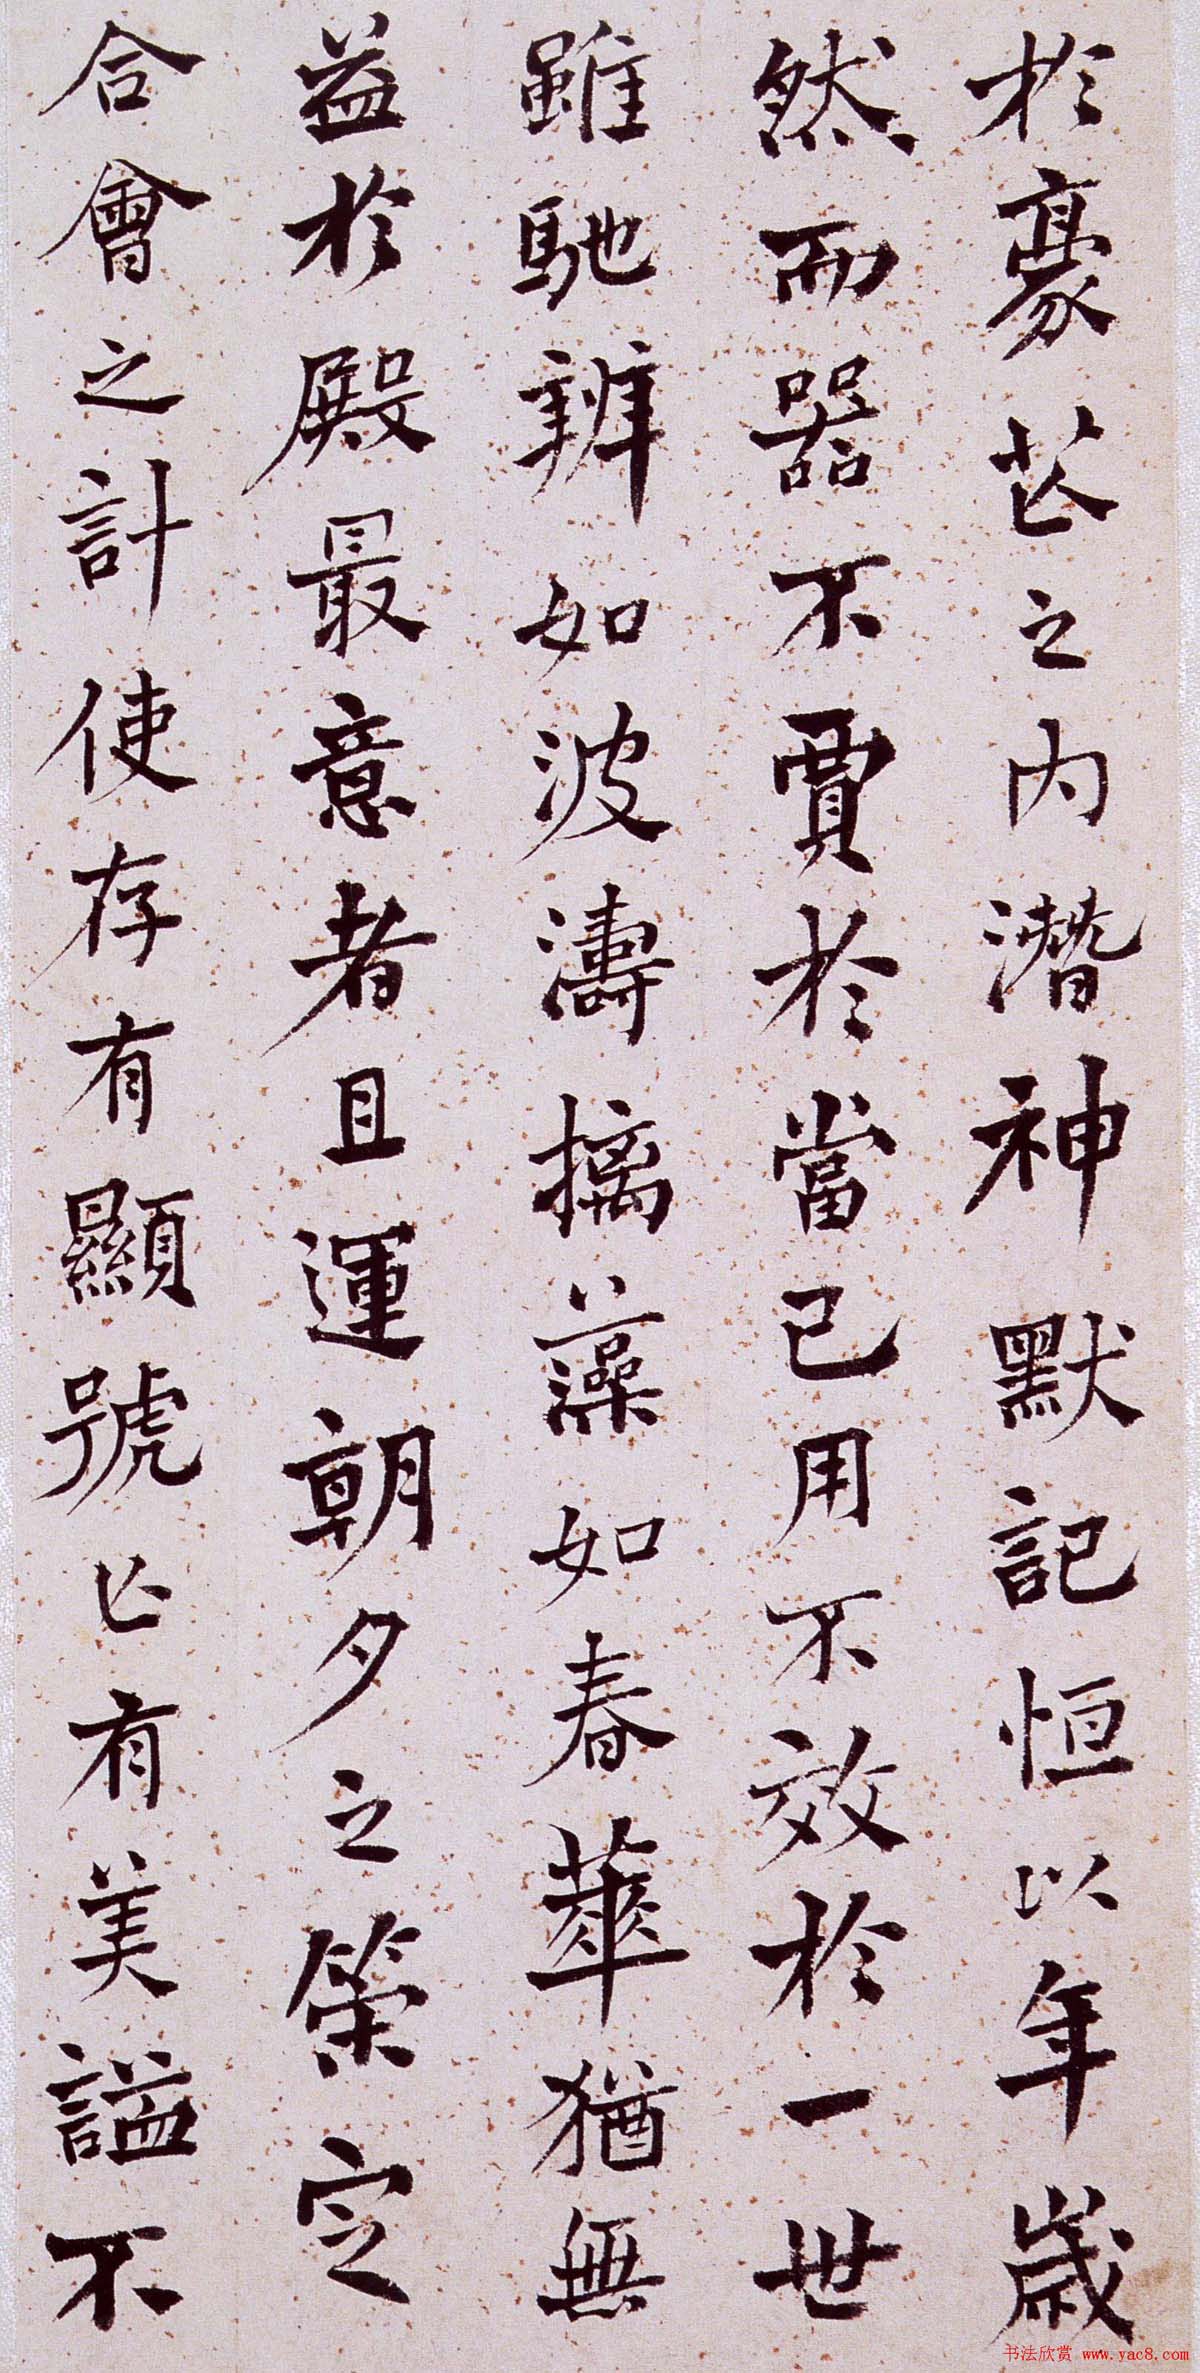 於豪芒之內潛神默記恒以年歲
然而器不賈於當己用不效於一世
雖馳辨如波濤摛藻如春華猶無
益於殿最意者且運朝夕之策定
合會之計使存有顯號亡有美謚不
书法欣赏 www.yac8.com